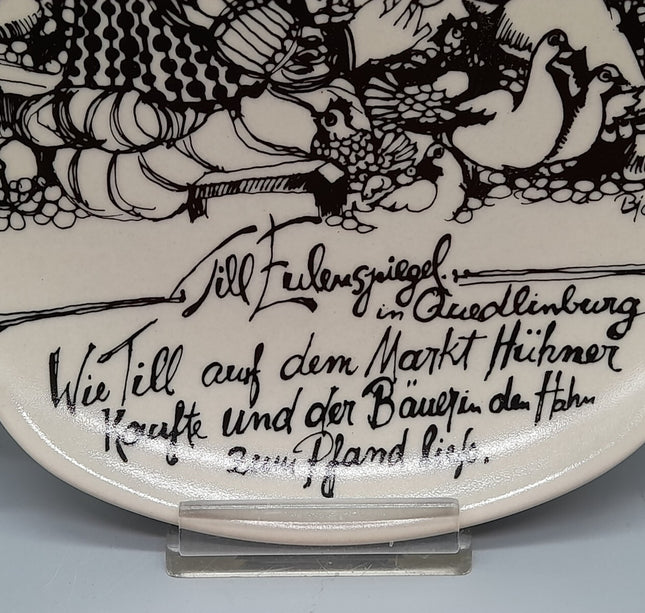 Till Eulenspiegel
in Quedlinburg
Wie Till auf dem Markt Hühner
Kaufte und der Bäuerin den Hahn
zum Pfand ließ.